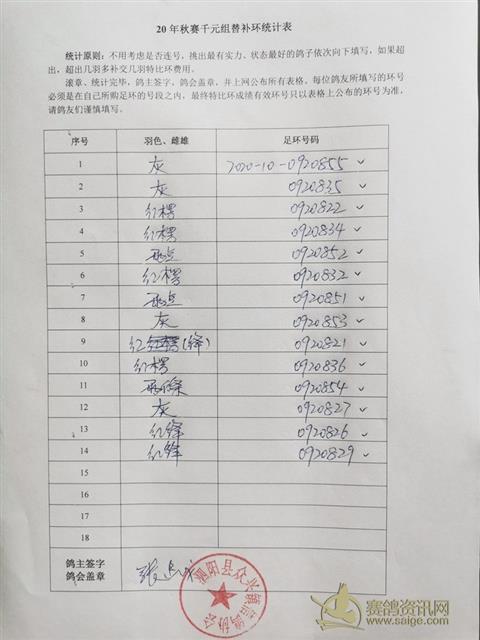 20 年秋赛千元组替补环统计表
统计原则：不用考虑是否连号，挑出最有实力、状态最好的鸽子依次向下填写，如果超
出，超出几羽多补交几羽特比环费用。
滚章、统计完毕，鸽主签字，鸽会盖章，并上网公布所有表格。每位鸽友所填写的环号
必须是在自己所购足环的号段之内，最终特比环成绩有效环号只以表格上公布的环号为准，
请鸽友们谨慎填写。
序号 羽色、雌雄 足环号码
1 灰 2020-10-0920855 ✓
2 灰 0920835 ✓
3 红楞 0920822 ✓
4 红楞 0920834 ✓
5 雨点 0920852 ✓
6 红楞 0920832 ✓
7 雨点 0920851 ✓
8 灰 0920853 ✓
9 红 (绛) 0920821 ✓
10 红楞 0920836 ✓
11 0920854 ✓
12 灰 0920827 ✓
13 红绛 0920826 ✓
14 红绛 0920829 ✓
15
16
17
18
鸽主签字
鸽会盖章
泗阳县众兴镇信鸽协会
赛鸽资讯网
www.saige.com